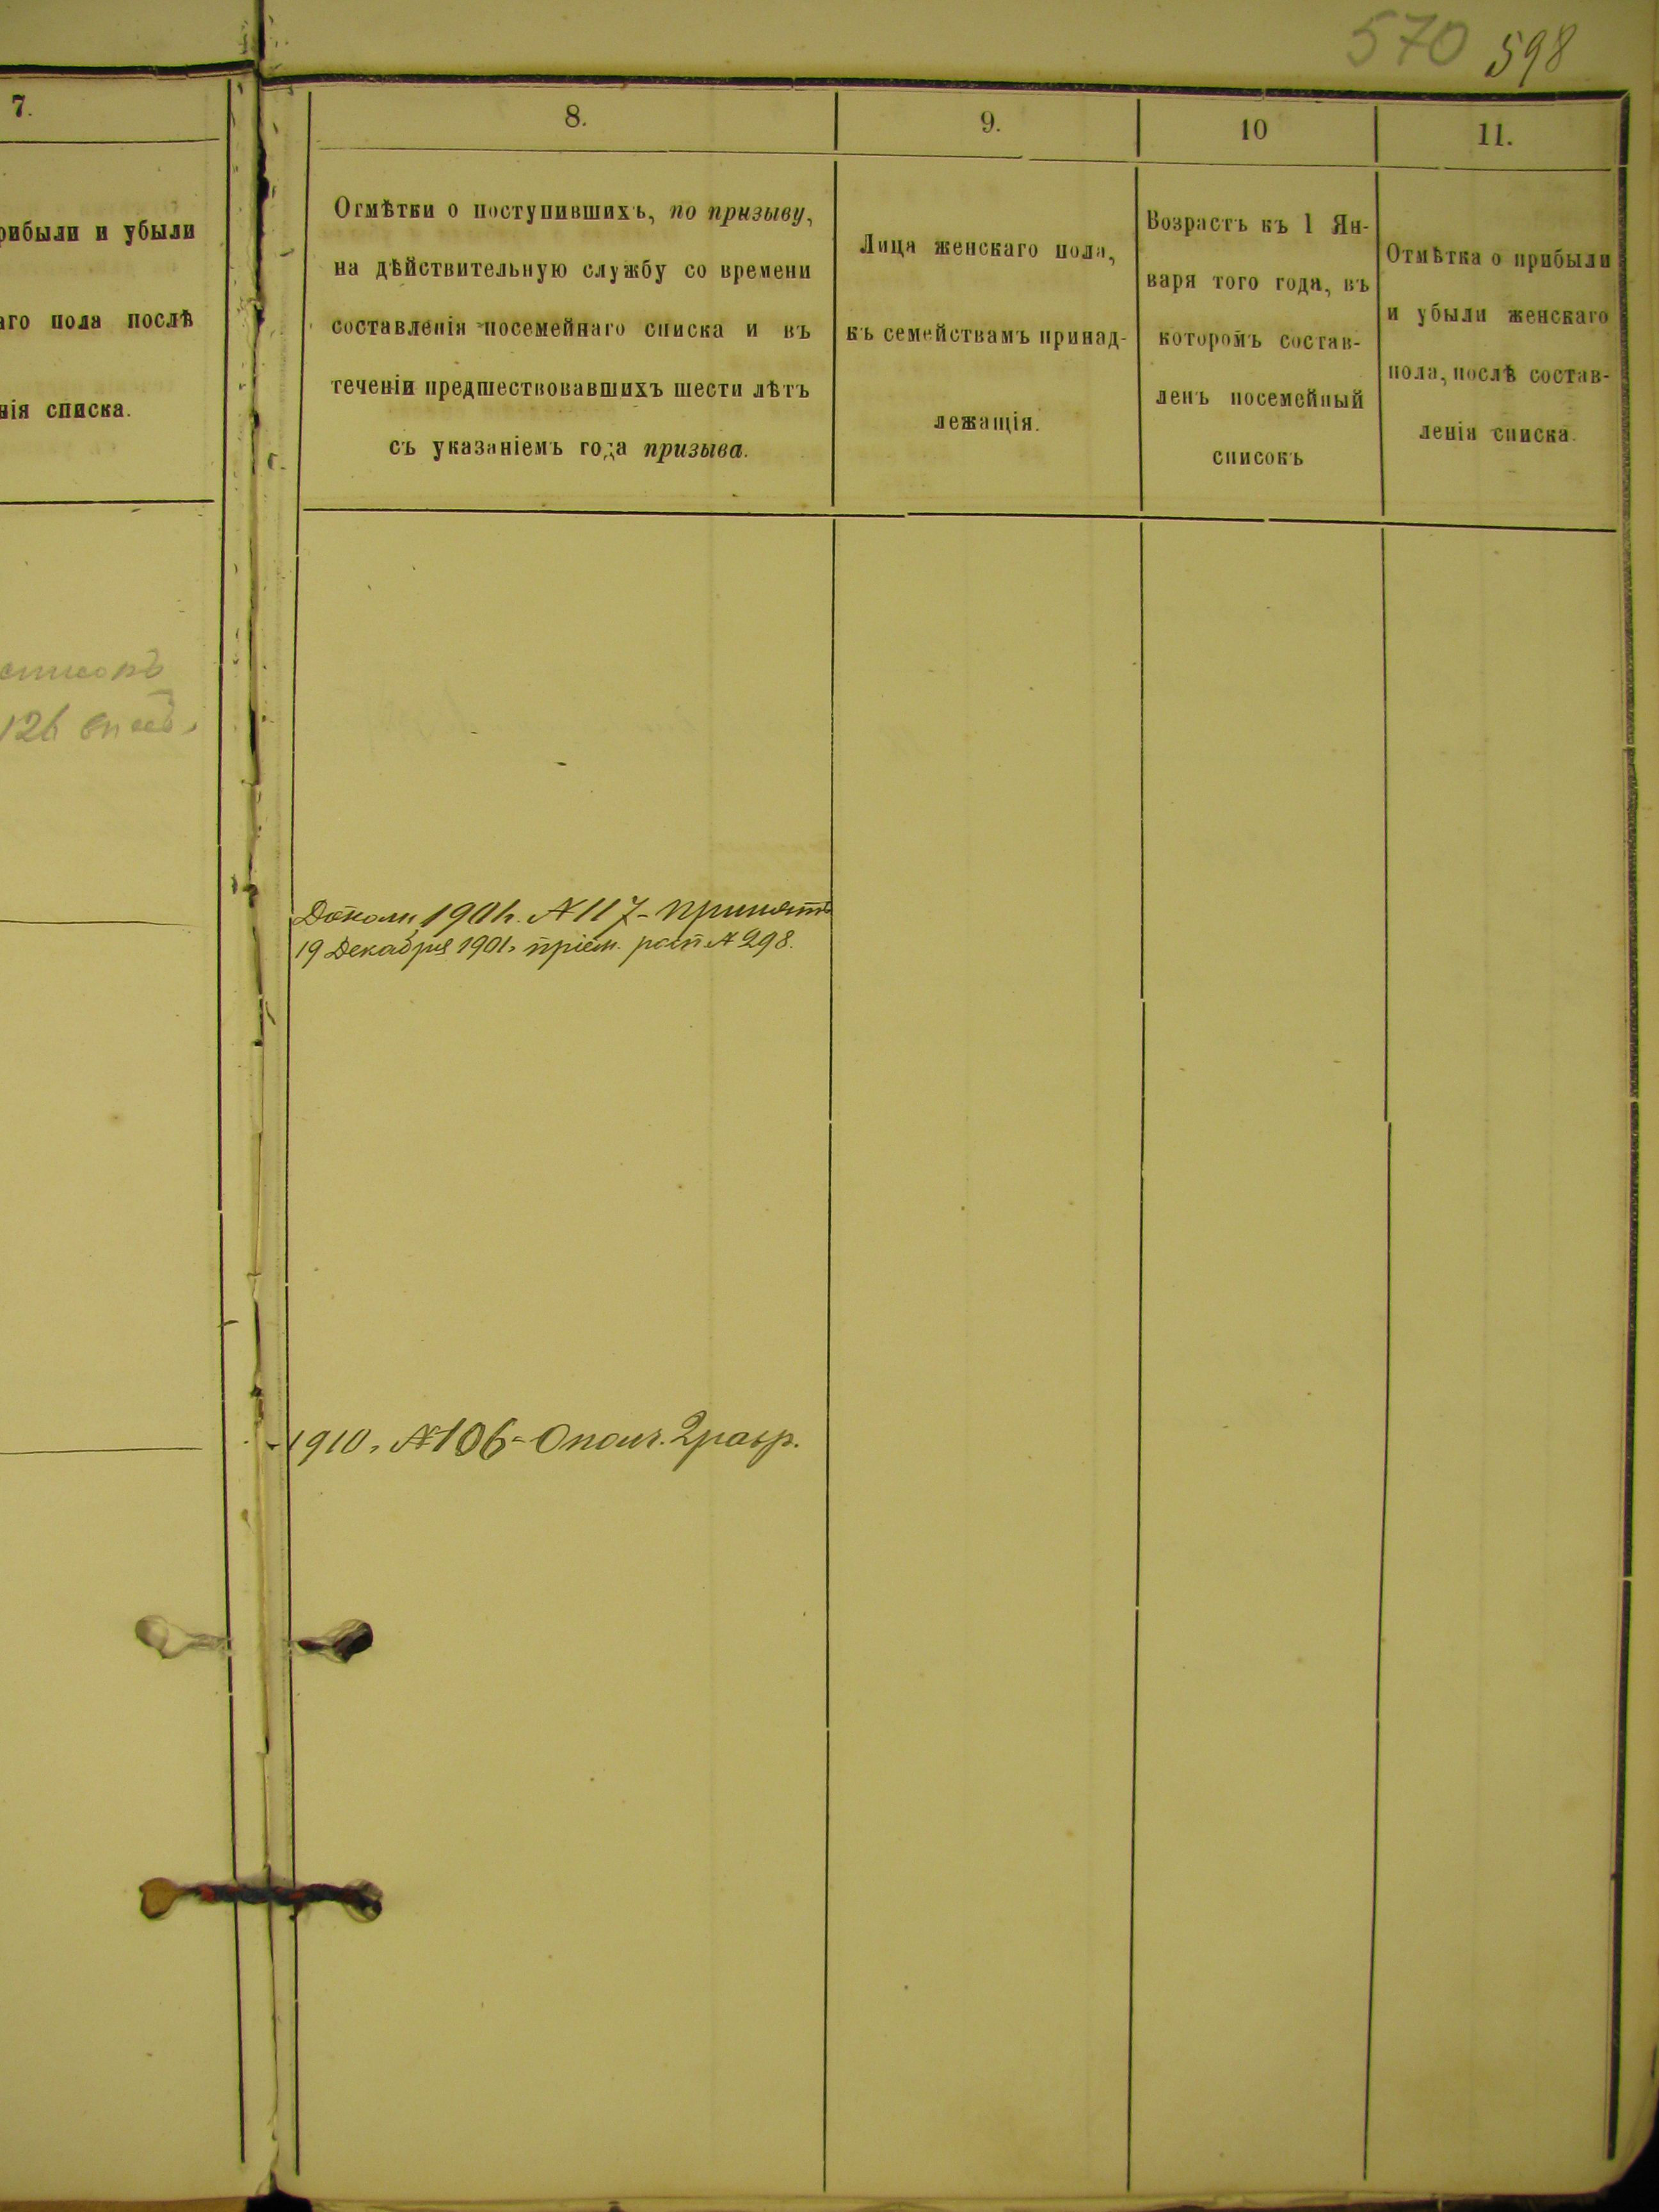 570 598
7.
рибыли и убыли
аго пола послѣ
нія списка.
списокъ
126
8.
Отмѣтки о поступившихъ, по призыву,
на дѣйствительную службу со времени
составленія посемейнаго списка и въ
теченіи предшествовавшихъ шести лѣтъ
съ указаніемъ года призыва.
9.
Лица женскаго пола,
къ семействамъ принад-
лежащія.
10
Возрастъ къ 1 Ян-
варя того года, въ
которомъ состав-
ленъ посемейный
списокъ
11.
Отмѣтка о прибыли
и убыли женскаго
пола, послѣ состав-
ленія списка.
1901г. №117- принятъ
19 Декабря 1901г. пріем. росп. №298.
1910г. №106- Ополч. 2 разр.